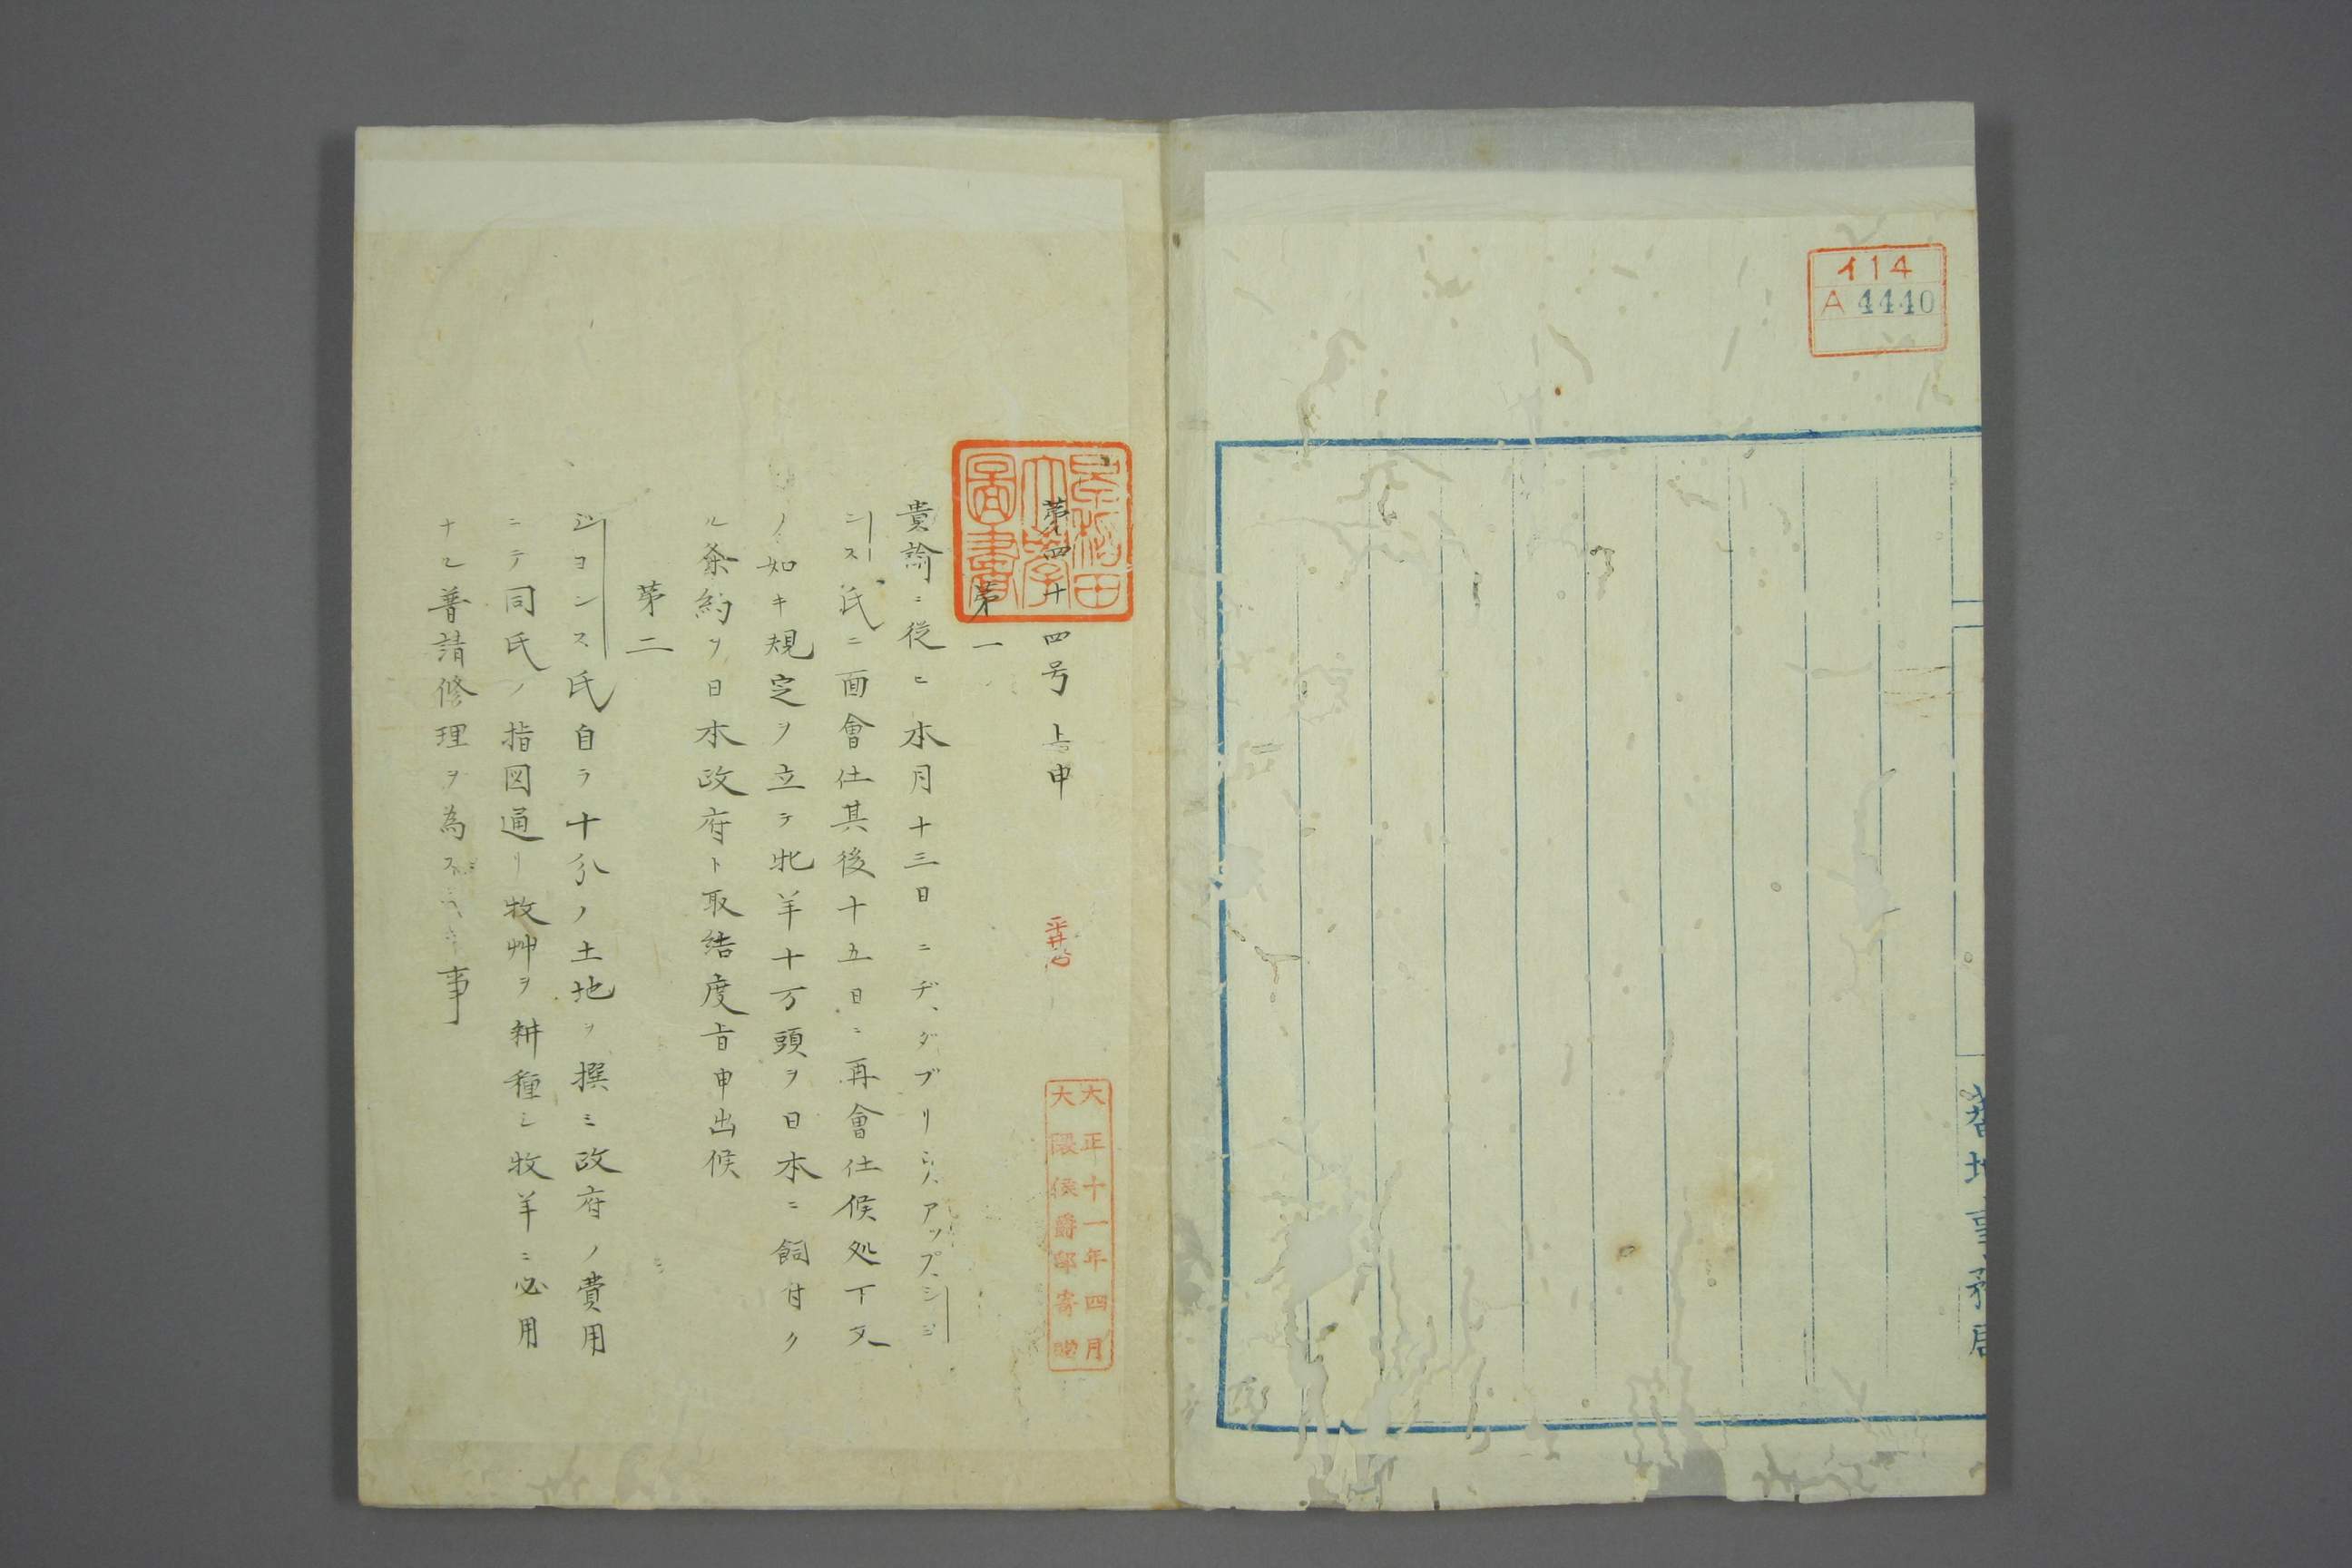 イ14
A 4440
蕃地事務局
早稲田
大學
圖書
第四十四号 上申
平井
大正十一年四月
大隈侯爵邸寄贈
第一
貴諭ニ従ヒ本月十三日ニヂ、ダブリウ、アップ、ジヨ
ンス氏ニ面會仕其後十五日ニ再會仕候処下文
ノ如キ規定ヲ立テ牝羊十万頭ヲ日本ニ飼付ク
ル条約ヲ日本政府ト取結度旨申出候
第二
ジヨンス氏自ラ十分ノ土地ヲ撰ミ政府ノ費用
ニテ同氏ノ指図通リ牧艸ヲ耕種シ牧羊ニ必用
ナル普請修理ヲ為ス 事